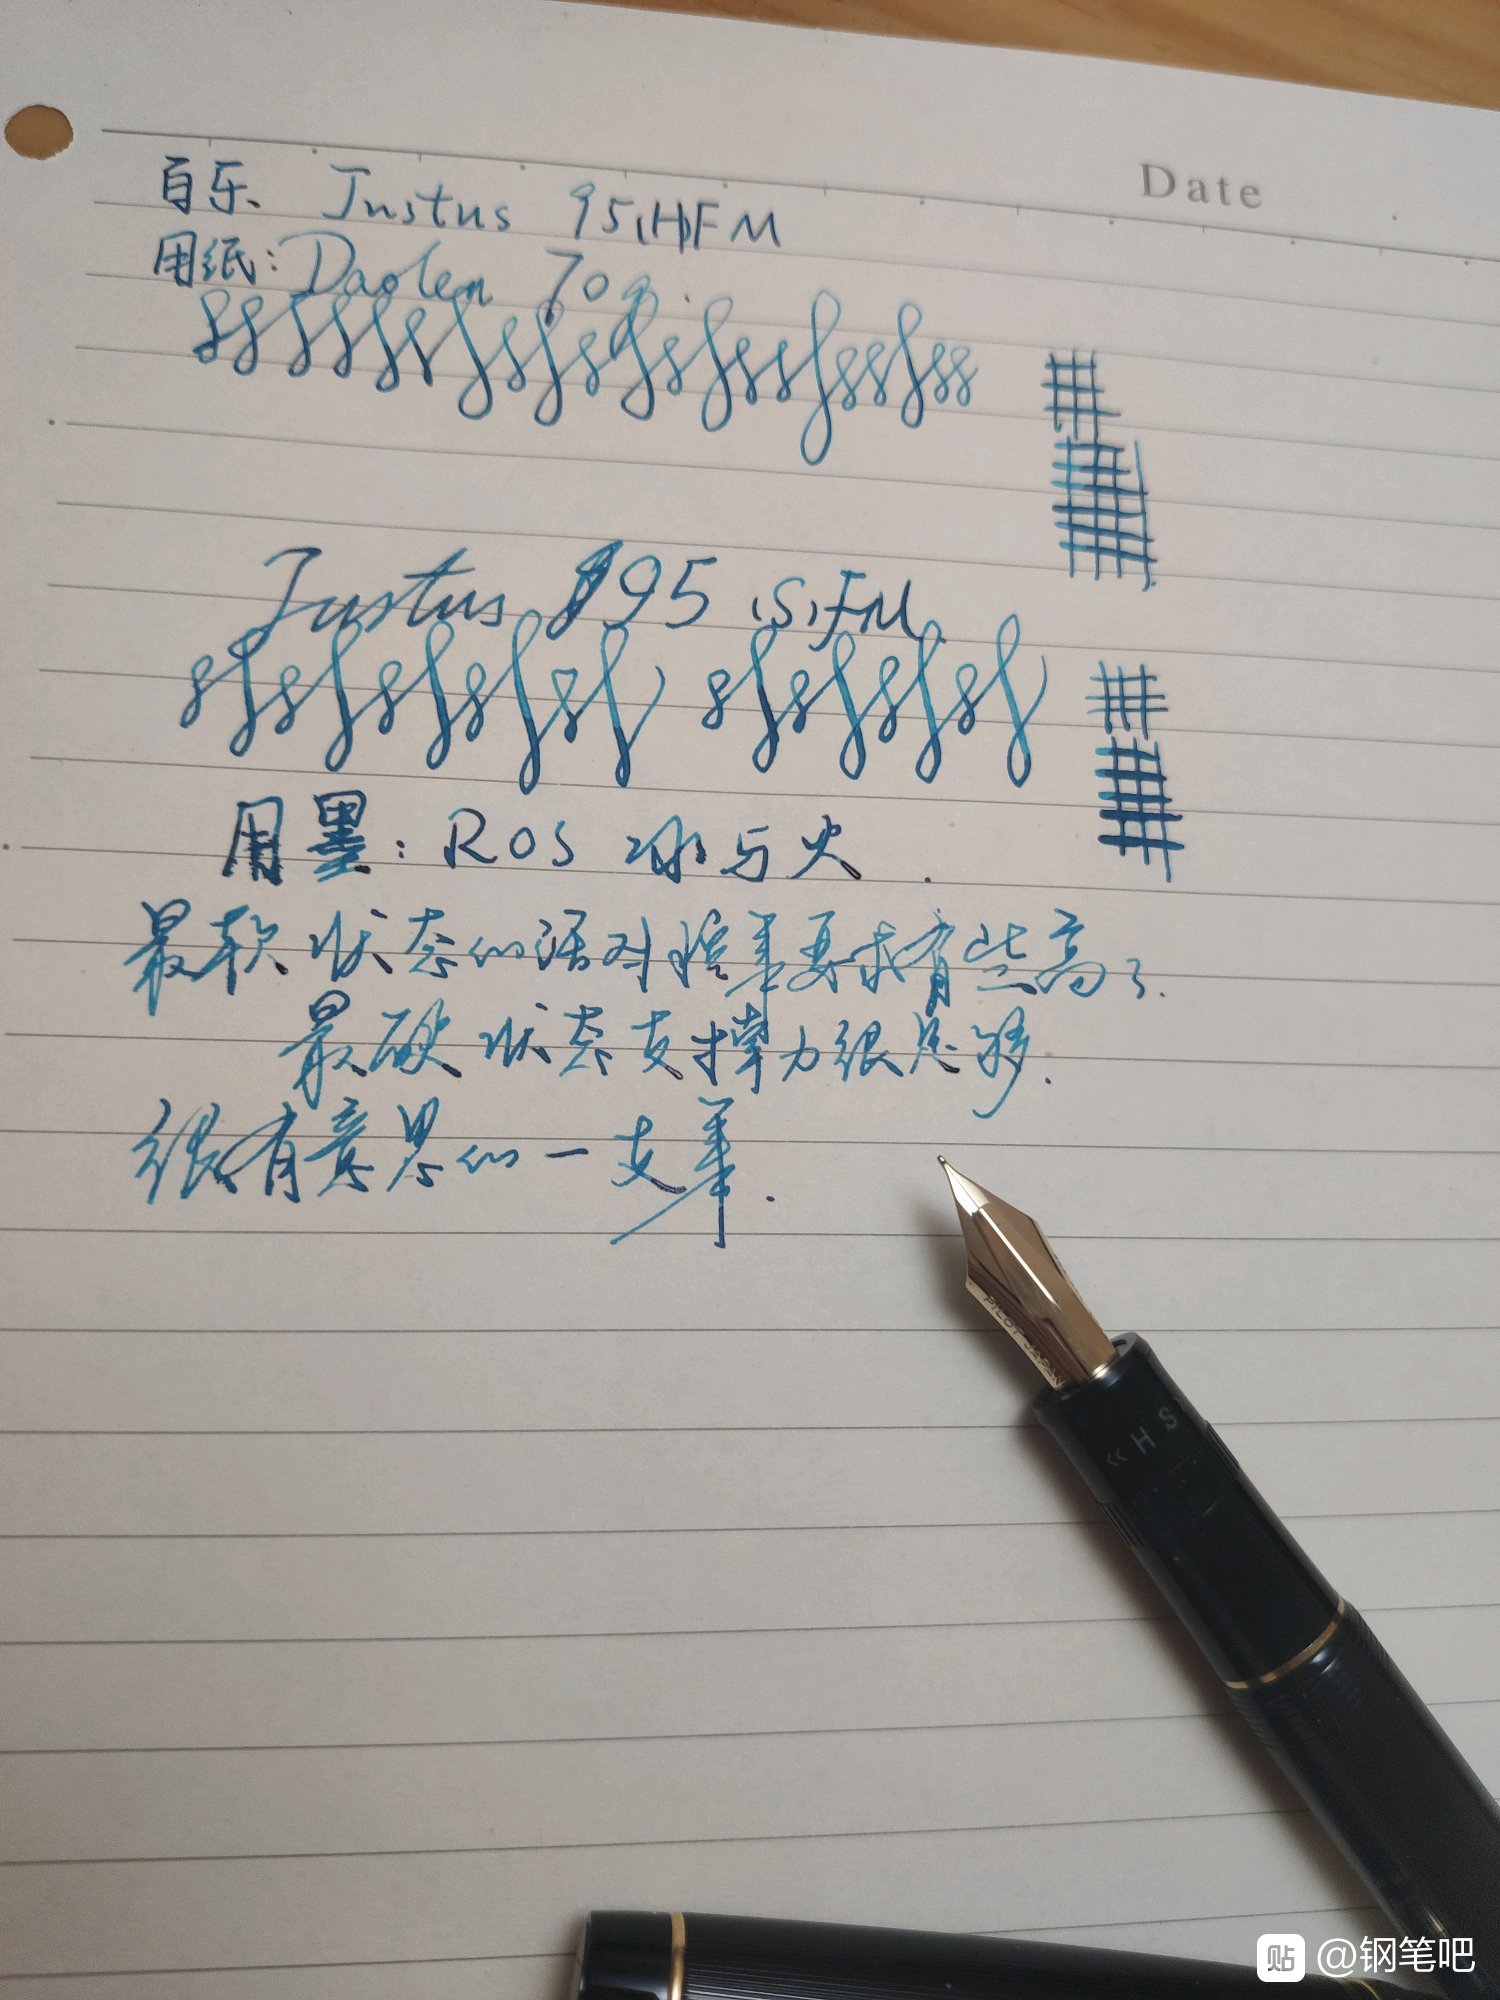 Date
百乐 Justus 95(H)FM
用纸：Daolen 70g.
Justus 95 (S)FM
用墨：ROS 冰与火.
最软状态的话对控笔要求有些高了.
最硬状态支撑力很足够.
很有意思的一支笔.
PILOT JAPAN
« H S
贴 @钢笔吧